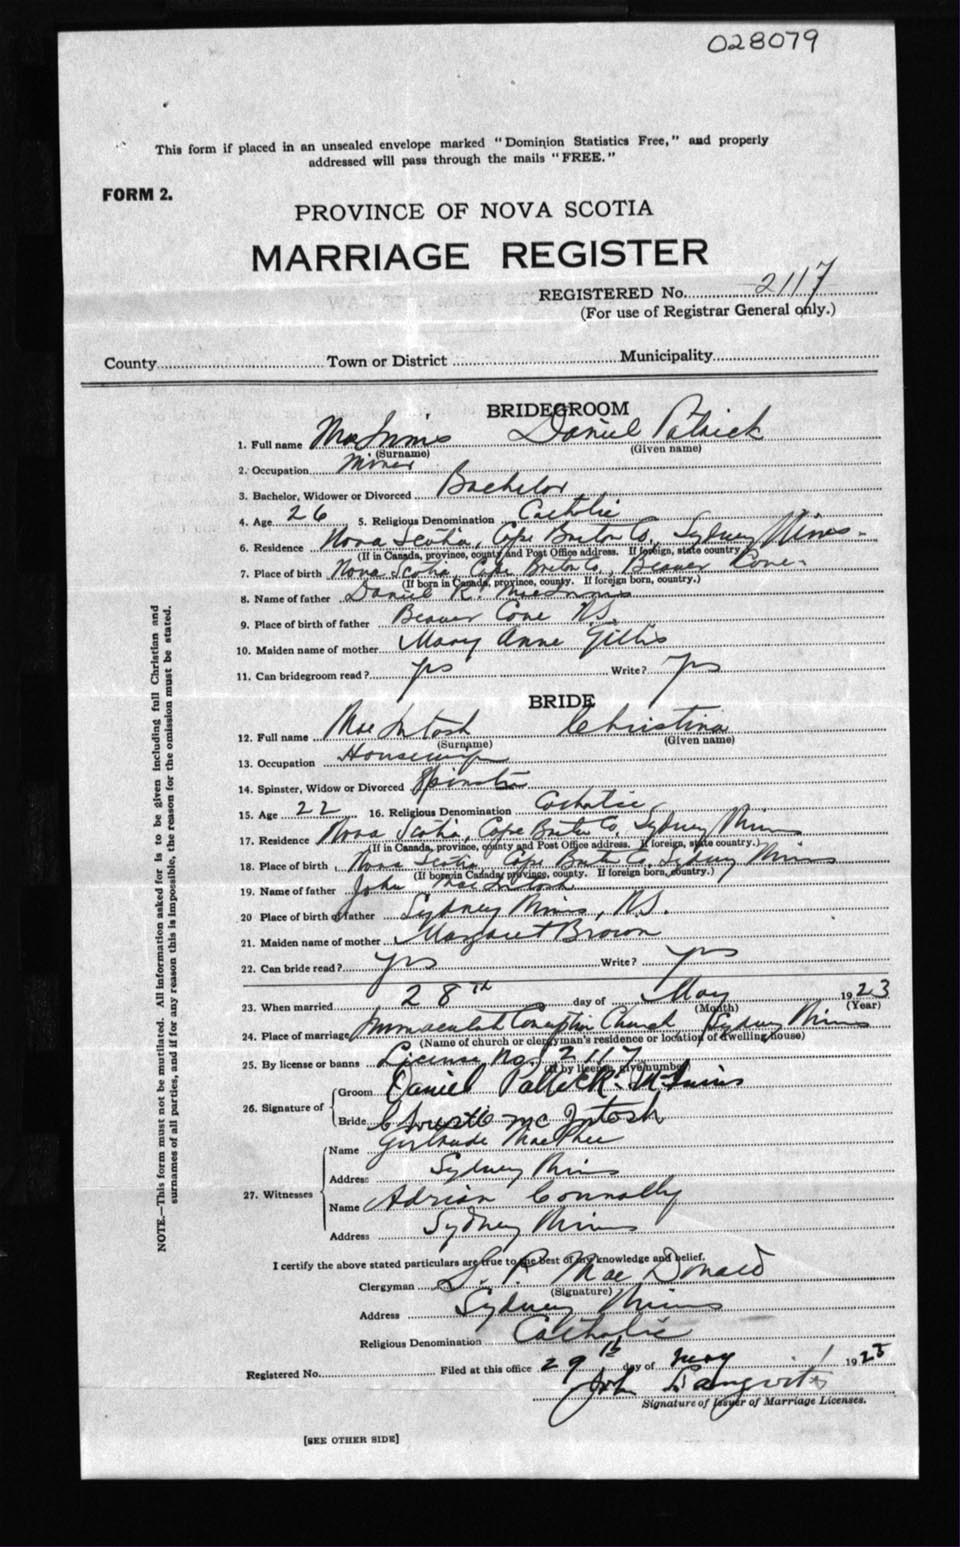 028079
This form if placed in an unsealed envelope marked "Dominion Statistics Free," and properly
addressed will pass through the mails "FREE."
FORM 2.
PROVINCE OF NOVA SCOTIA
MARRIAGE REGISTER
REGISTERED No. 2117
(For use of Registrar General only.)
County Town or District Municipality
BRIDEGROOM
1. Full name MacInnis Daniel Patrick
(Surname) (Given name)
2. Occupation Miner
3. Bachelor, Widower or Divorced Bachelor
4. Age 26 5. Religious Denomination Catholic
6. Residence Nova Scotia, Cape Breton Co, Sydney Mines
(If in Canada, province, county and Post Office address. If foreign, state country.)
7. Place of birth Nova Scotia, Cape Breton Co, Beaver Cove
(If born in Canada, province, county. If foreign born, country.)
8. Name of father Daniel R. MacInnis
9. Place of birth of father Beaver Cove N.S.
10. Maiden name of mother Mary Anne Gillis
11. Can bridegroom read? yes Write? yes
BRIDE
12. Full name MacIntosh Christina
(Surname) (Given name)
13. Occupation Housewife
14. Spinster, Widow or Divorced Spinster
15. Age 22 16. Religious Denomination Catholic
17. Residence Nova Scotia, Cape Breton Co, Sydney Mines
(If in Canada, province, county and Post Office address. If foreign, state country.)
18. Place of birth Nova Scotia, Cape Breton Co, Sydney Mines
(If born in Canada, province, county. If foreign born, country.)
19. Name of father John MacIntosh
20 Place of birth of father Sydney Mines, N.S.
21. Maiden name of mother Margaret Brown
22. Can bride read? yes Write? yes
23. When married 28th day of May 1923
(Month) (Year)
24. Place of marriage Immaculate Conception Church, Sydney Mines
(Name of church or clergyman's residence or location of dwelling house)
25. By license or banns License, No. 2117
(If by license, give number)
26. Signature of Groom Daniel Patrick McInnis
Bride Christie McIntosh
27. Witnesses Name Gertrude MacPhee
Address Sydney Mines
Name Adrian Connolly
Address Sydney Mines
I certify the above stated particulars are true to the best of my knowledge and belief.
Clergyman P. MacDonald
(Signature)
Address Sydney Mines
Religious Denomination Catholic
Registered No. Filed at this office 29th day of May 192
John
Signature of Issuer of Marriage Licenses.
[SEE OTHER SIDE]
NOTE.—This form must not be mutilated. All information asked for is to be given including full Christian and
surnames of all parties, and if for any reason this is impossible, the reason for the omission must be stated.